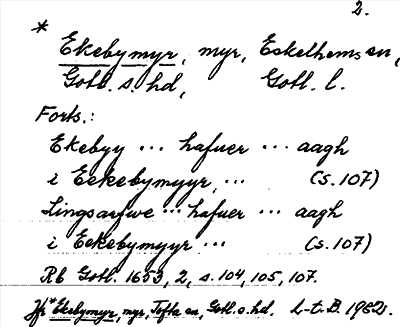 2.
*
Ekebymyr, myr, Eskelhems sn,
Gotl. s. hd, Gotl. l.
Forts.:
Ekebyy ... hafuer ... aagh
i Eekebymyyr, ... (s. 107)
Lingsarfwe ... hafuer ... aagh
i Eekebymyyr ... (s. 107)
Rb Gotl. 1653, 2, s. 104, 105, 107.
Jfr *Ekebymyr, myr, Tofta sn, Gotl. s. hd. L-t. B. 1962.